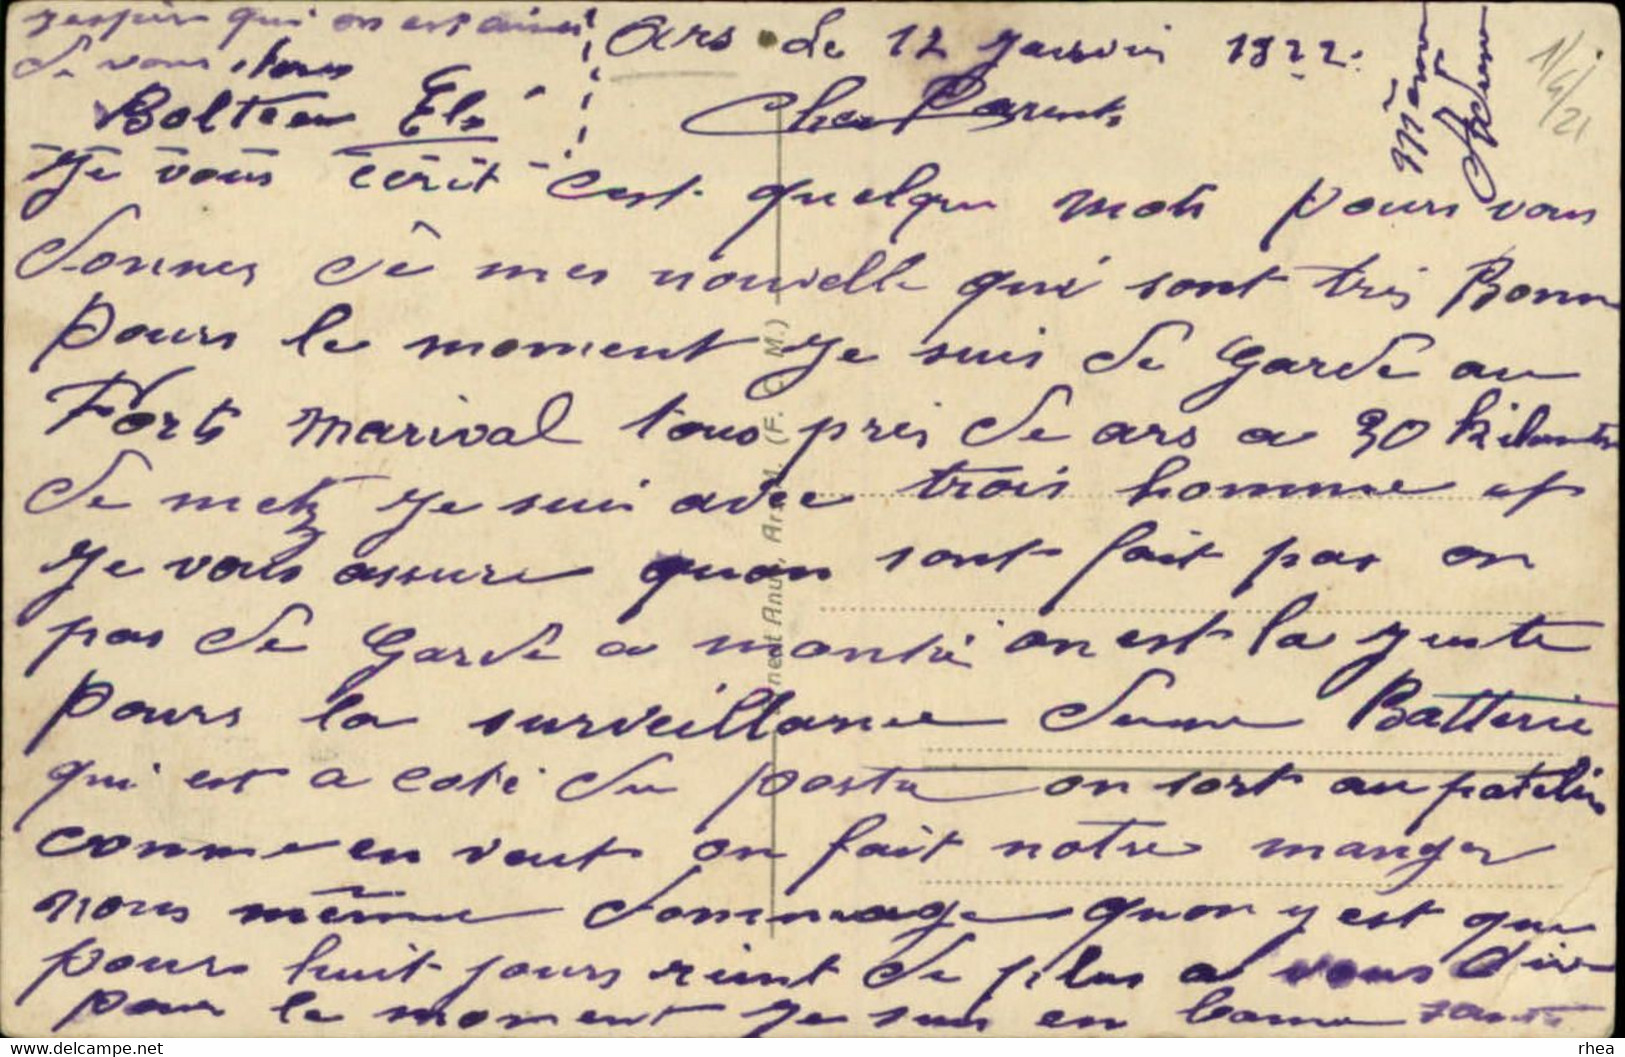 Ars le 12 Janvier 1922.
Chers Parents
Je vous écrit c'est quelque mots pours vous
donner dê mes nouvelle qui sont tres Bonne
pours le moment Je suis de Garde au
Forts marival tous pres de ars a 30 kilomtr
de metz Je suis avec trois homme et
Je vous assure quon sont fait pas on
pas de Garde a monté on est la juste
pours la surveillance dune Batterie
qui est a coté du poste on sort au patelin
comme en veut on fait notre manger
nous même dommage quon y est que
pours huit jours rient de plus a vous dire
pour le moment Je suis en bonne santé
j'espère qui on est ainsi
de vous tous
Bolteau
1/4/21
(F. C. M.)
delcampe.net
rhea